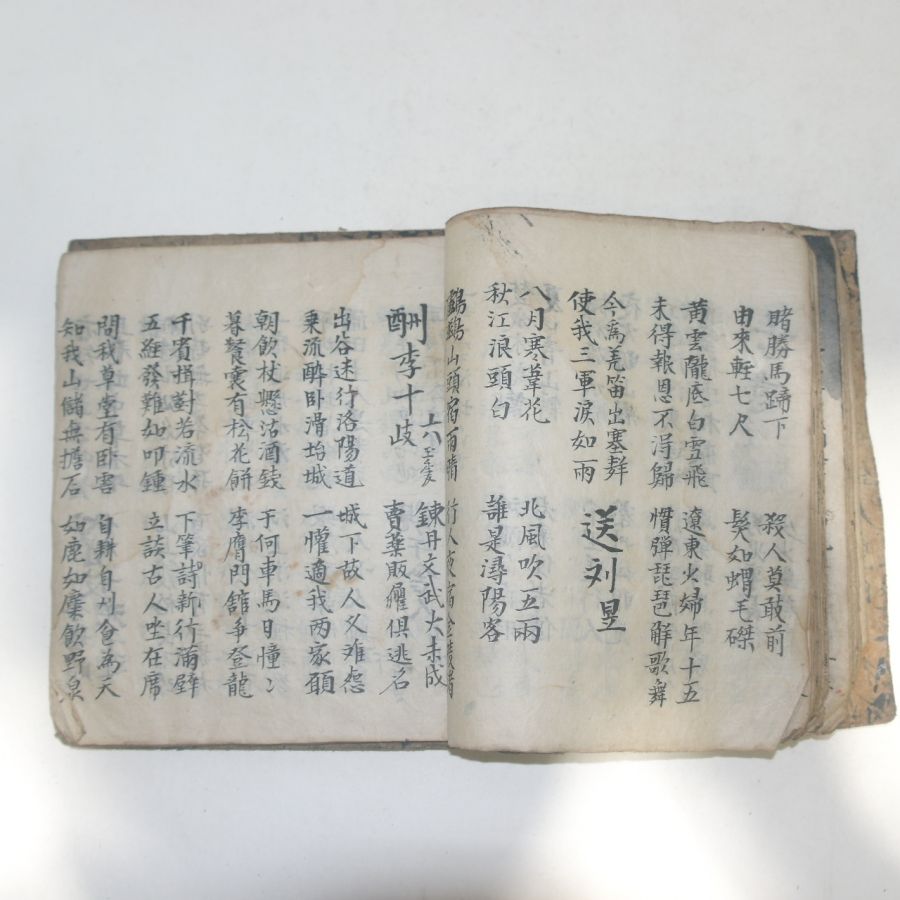 賭勝馬蹄下 殺人莫敢前
由來輕七尺 髮如蝟毛磔
黃雲隴底白雪飛 遼東少婦年十五
未得報恩不得歸 慣彈琵琶觧歌舞
今爲羌笛出塞聲
使我三軍淚如雨
送刘昱
八月寒葦花 北風吹五兩
秋江浪頭白 誰是潯陽客
山頭宿雨晴
酬李十六岐
鍊丹文武火未成
賣藥販 俱逃名
出谷迷行洛陽道 城下故人又难怨
乘流醉卧滑坮城 一懽適我两家願
朝飮杖懸沽酒錢 于何車馬日憧〻
暮飡囊有松花餅 李膺門舘爭登龍
千賓揖對若流水 下筆詩新行滿壁
五經發難如叩鍾 立談古人坐在席
問我草堂有卧害 自耕自刈食為天
知我山儲無擔石 如鹿如麋飮野泉